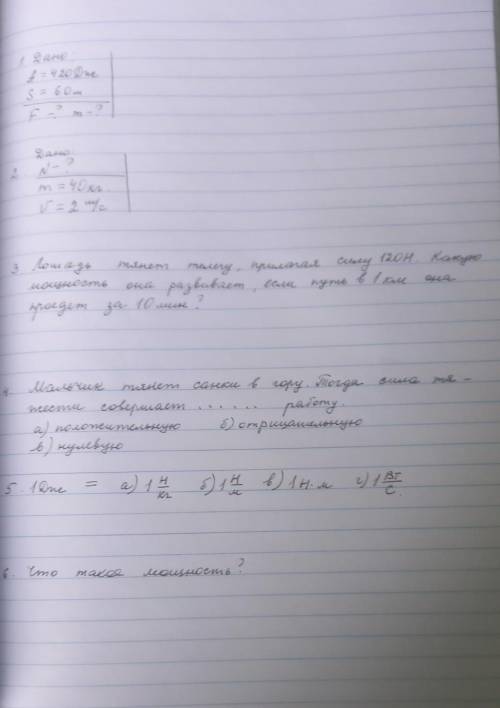 1. Дано:
A = 420 Дж
S = 60 м
F - ? m - ?
Дано:
2. N - ?
m = 40 кг
V = 2 м/с
3. Лошадь тянет телегу, прилагая силу 120Н. Какую
мощность она развивает, если путь в 1 км она
пройдет за 10 мин?
4. Мальчик тянет санки в гору. Тогда сила тя-
жести совершает ...... работу.
а) положительную б) отрицательную
в) нулевую
5. 1Дж = а) 1 Н/кг б) 1 Н/м в) 1 Н·м г) 1 Вт/с.
6. Что такое мощность?